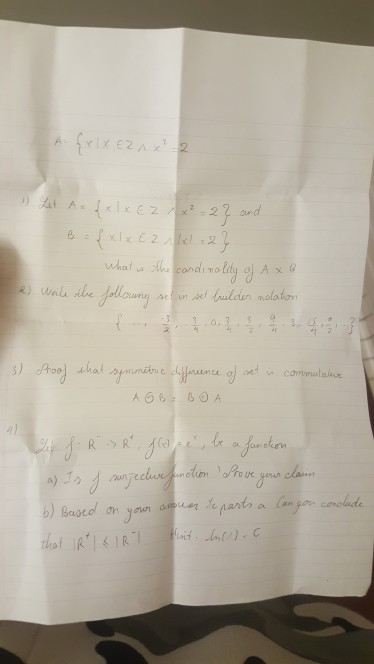 A = {x|x ∈ Z ∧ x² = 2
1) Let A = {x|x ∈ Z ∧ x² = 2} and
B = {x|x ∈ Z ∧ |x| = 2}
What is the cardinality of A x B
2) Write the following set in set builder notation
{ ..., -3/2, -3/4, 0, 3/4, 3/2, 9/4, 3, 15/4, 9/2, ...}
3) Proof that symmetric difference of set is commutative
A ⊖ B = B ⊖ A
4)
Let f: R⁻ -> R⁺, f(x) = eˣ, be a function
a) Is f surjective function? Prove your claim
b) Based on your answer to parts a Can you conclude
that |R⁺| ≤ |R⁻| Hint: ln(1) = 0